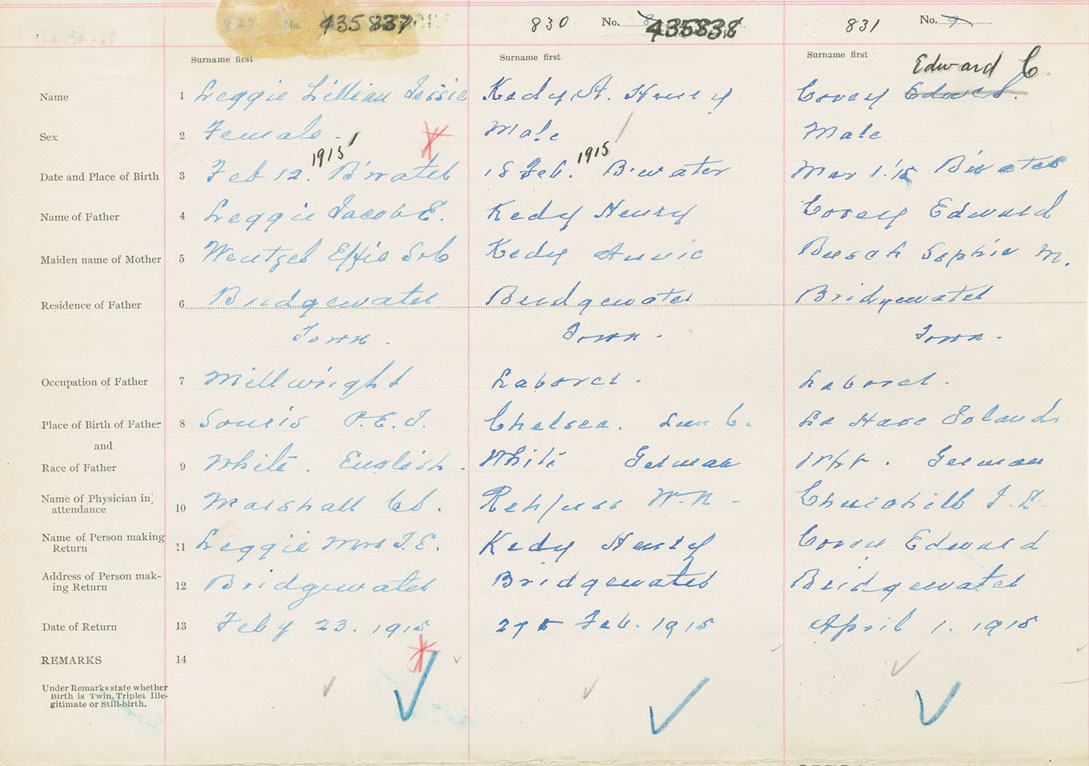 829 No. 435837 830 No. 435838 831 No. 9
Surname first Surname first Surname first
Edward C.
Name 1 Leggie Lillian Jessie Kedy, A. Henry Covey Edward.
Sex 2 Female. Male Male
1915 1915
Date and Place of Birth 3 Feb 12. B'water 18 Feb. B'water Mar 1.'15 B'water
Name of Father 4 Leggie Jacob E. Kedy Henry Covey Edward
Maiden name of Mother 5 Wentzel Effie Kedy Annie Sophia M.
Residence of Father 6 Bridgewater Bridgewater Bridgewater
Town. Town. Town.
Occupation of Father 7 Millwright Laborer. Laborer.
Place of Birth of Father 8 Souris P.E.I. Chelsea. Lun C. La Have Island
and
Race of Father 9 White. English. White German Wht. German
Name of Physician in attendance 10 Marshall C. Rehfuss W.N. Churchill
Name of Person making Return 11 Leggie Mrs J.E. Kedy Henry Covey Edward
Address of Person mak-
ing Return 12 Bridgewater Bridgewater Bridgewater
Date of Return 13 Feby 23. 1915 27 Feb. 1915 April 1. 1915
REMARKS 14
Under Remarks state whether
Birth is Twin, Triplet Ille-
gitimate or Still-birth.